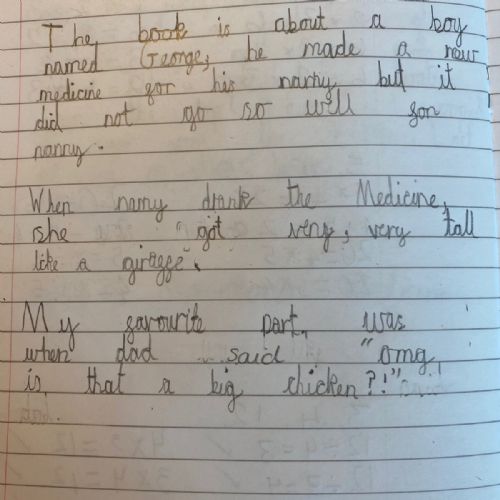 The book is about a boy
named George, he made a new
medicine for his nanny but it
did not go so well for
nanny.
When nanny drank the Medicine,
she got very, very tall
like a giraffe.
My favourite part, was
when dad said "omg
is that a big chicken?!"